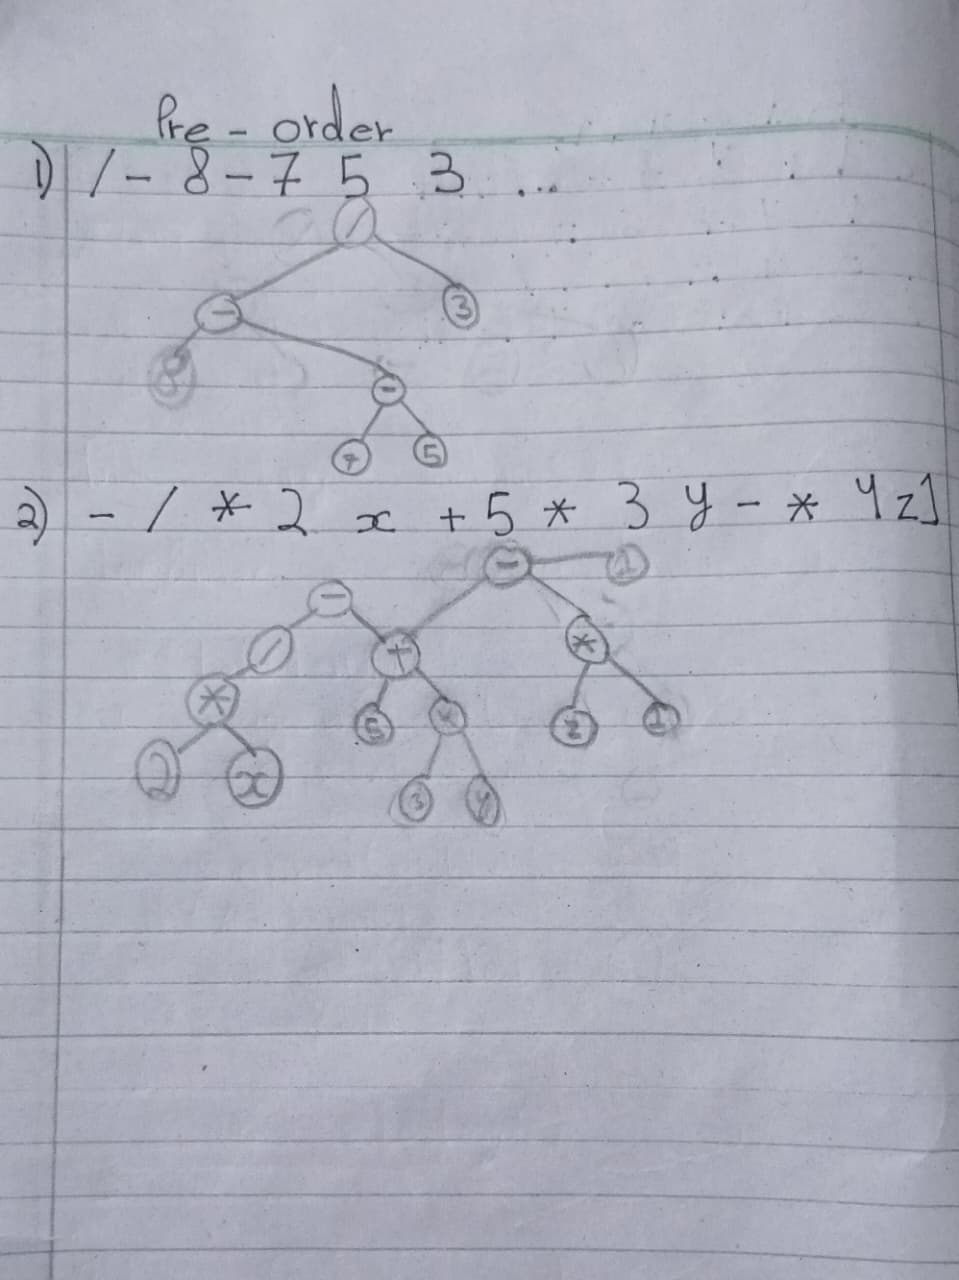 Pre - order
1) / - 8 - 7 5 3 ...
/
- 3
8 -
7 5
2) - / * 2 x + 5 * 3 y - * 4 z 1
- 1
-
/ + *
* 5 * 2 1
2 x 3 y